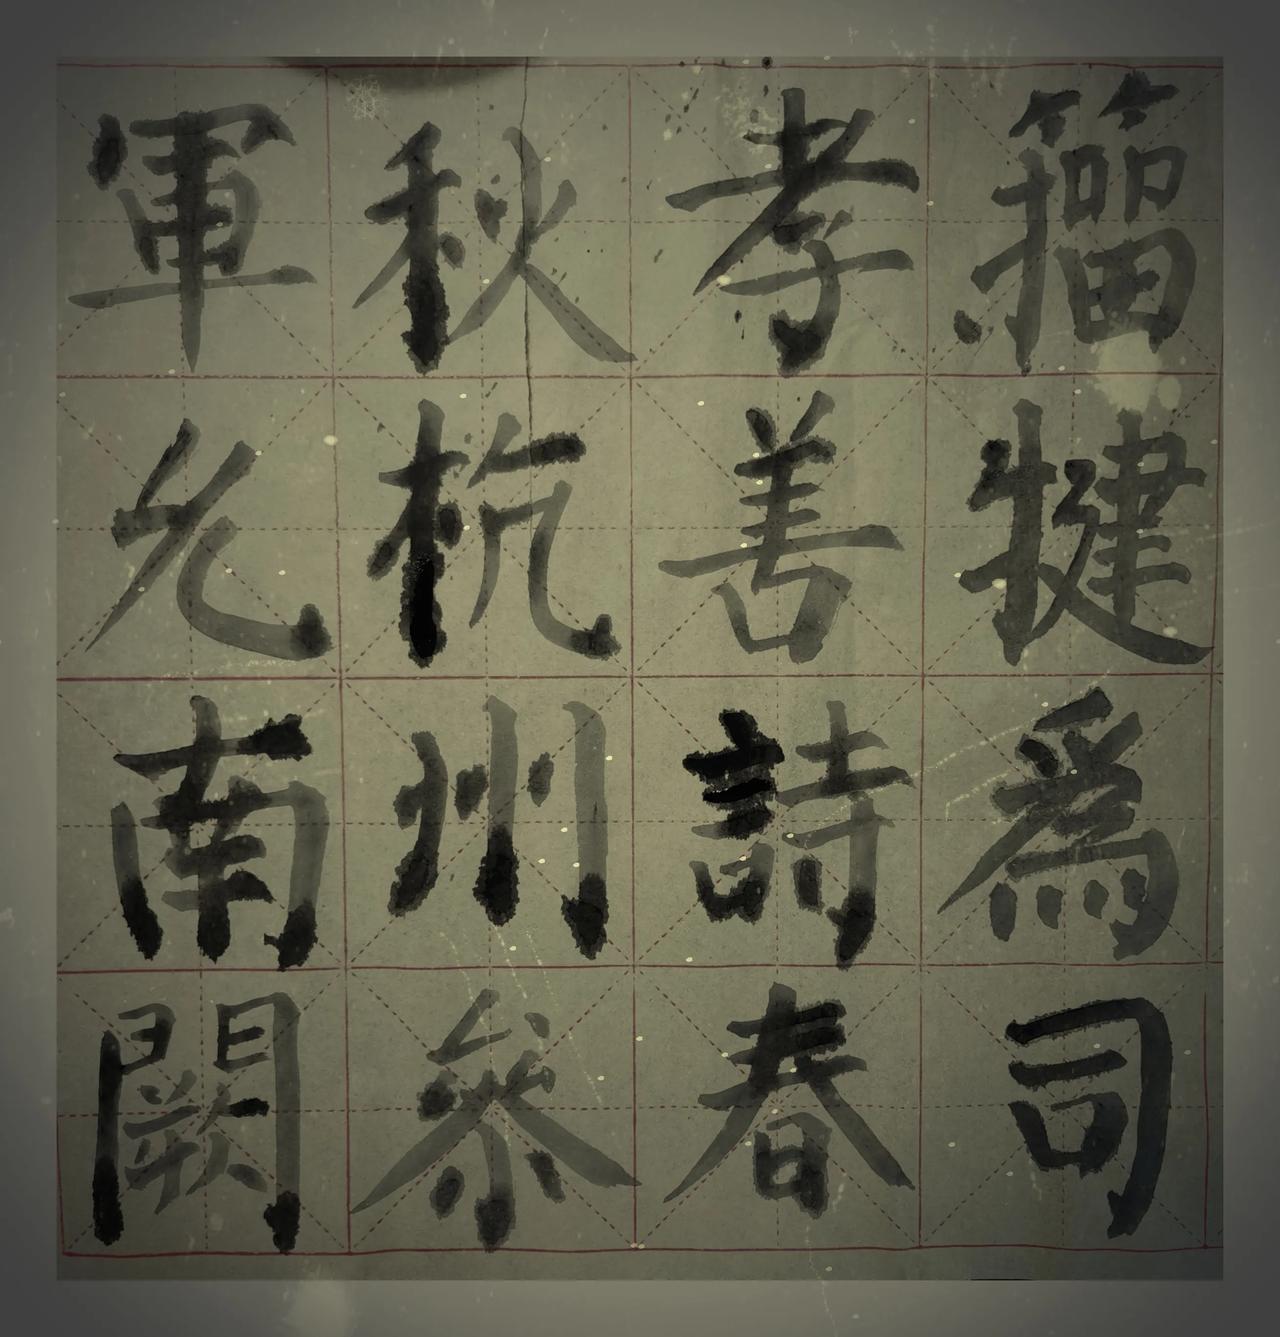 籀犍爲司
孝善詩春
秋杭州參
軍允南闕